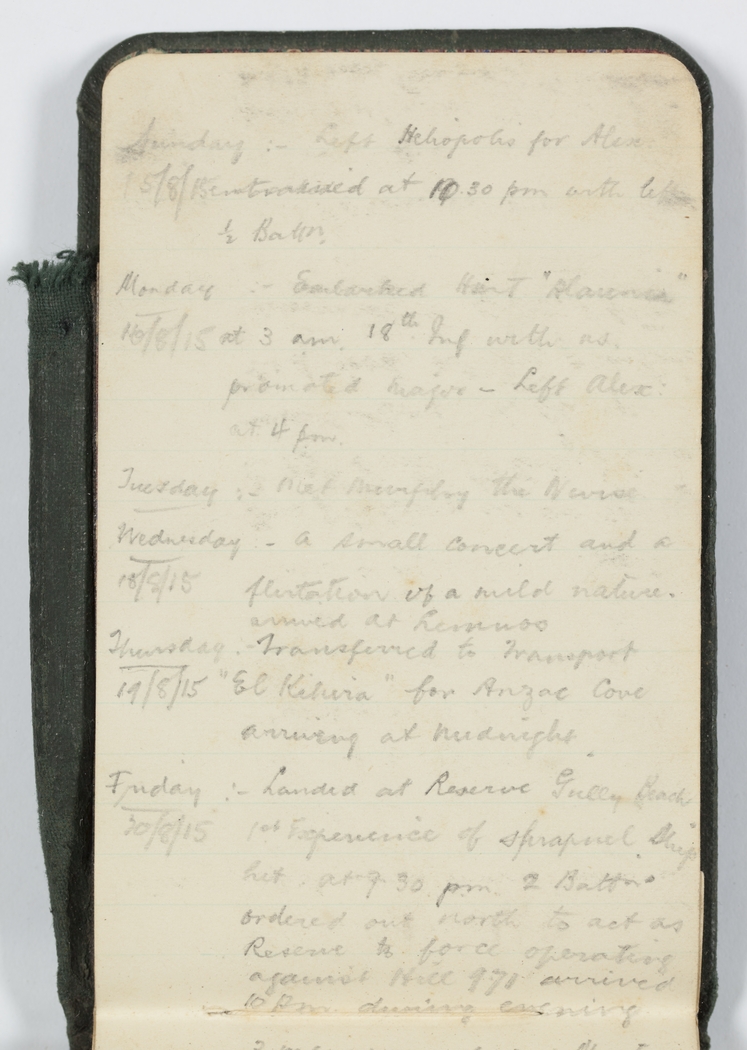 Sunday :- Left Heliopolis for Alex:
15/8/15 entrained at 10.30 pm with left
½ Battn.
Monday :- Embarked
16/8/15 at 3 am. 18th Inf with us.
promoted major - Left Alex:
at 4 pm.
Tuesday :- Met Murphy the Nurse
Wednesday - A small concert and a
18/8/15 flirtation of a mild nature.
arrived at Lemnos
Thursday :- Transferred to Transport
19/8/15 "El Kahira" for Anzac Cove
arriving at midnight
Friday :- Landed at Reserve Gully Beach
20/8/15 1st Experience of shrapnel Ship
hit at 9 30 pm. 2 Battns
ordered out north to act as
Reserve to force operating
against Hill 971 arrived
10 Pm during evening